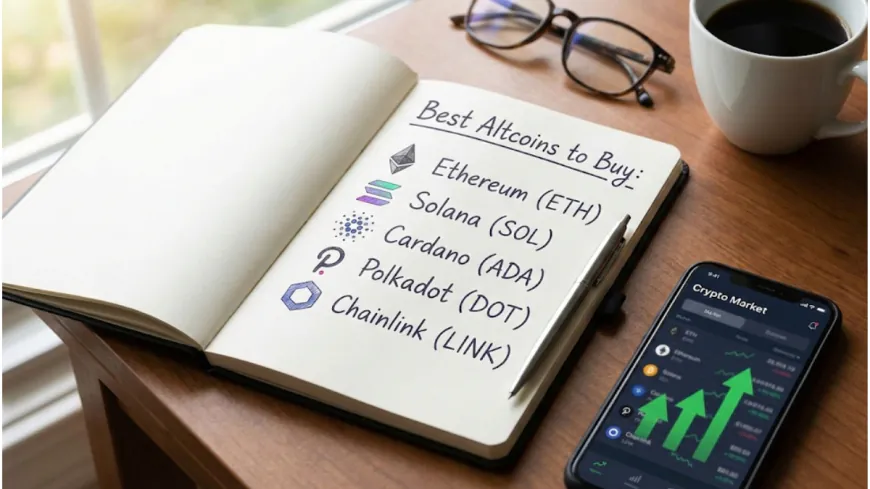 Best Altcoins to Buy:
Ethereum (ETH)
Solana (SOL)
Cardano (ADA)
Polkadot (DOT)
Chainlink (LINK)
9:41
Crypto Market
ETH
Ethereum
Solana
Chainlink
LINK